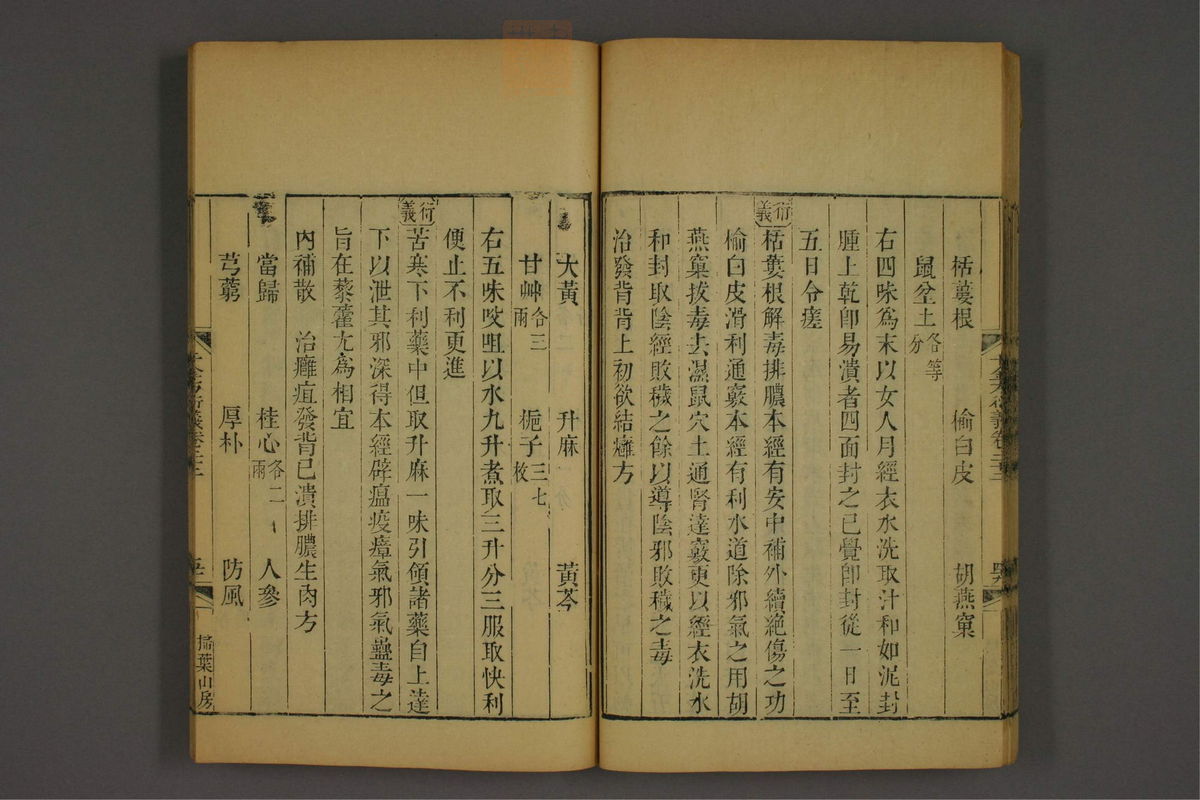 栝蔞根　榆白皮　胡燕窠
鼠坌土各等分
右四味為末以女人月經衣水洗取汁和如泥封
腫上乾卽易潰者四面封之已覺卽封從一日至
五日令瘥
衍義
栝蔞根解毒排膿本經有安中補外續絕傷之功
榆白皮滑利通竅本經有利水道除邪氣之用胡
燕窠拔毒去濕鼠穴土通腎達竅更以經衣洗水
和封取陰經敗穢之餘以導陰邪敗穢之毒
治發背背上初欲結癰方
大黃　升麻　黃芩
甘艸各三兩　梔子三七枚
右五味㕮咀以水九升煮取三升分三服取快利
便止不利更進
衍義
苦寒下利藥中但取升麻一味引領諸藥自上達
下以泄其邪深得本經辟瘟疫瘴氣邪氣蠱毒之
旨在藜藿尤為相宜
內補散　治癰疽發背已潰排膿生肉方
當歸　桂心各二兩　人參
芎藭　厚朴　防風
千金方衍義卷二十二
掃葉山房